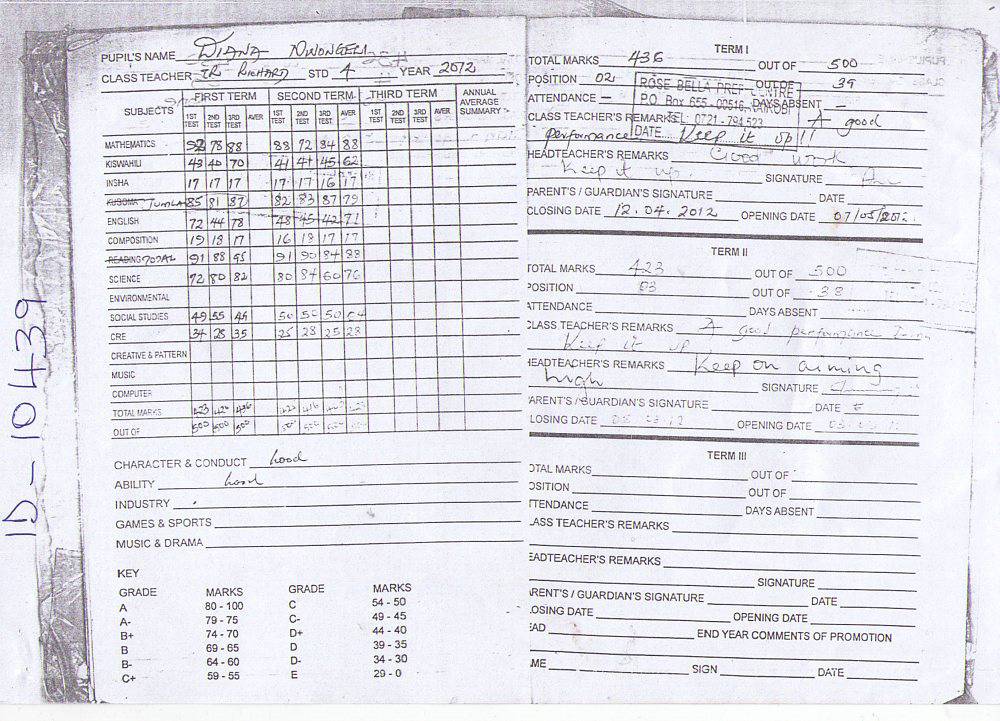 PUPIL'S NAME DIANA
CLASS TEACHER TR. RICHARD STD 4 YEAR 2012
SUBJECTS FIRST TERM SECOND TERM THIRD TERM ANNUAL AVERAGE SUMMARY
1ST TEST 2ND TEST 3RD TEST AVER 1ST TEST 2ND TEST 3RD TEST AVER 1ST TEST 2ND TEST 3RD TEST AVER
MATHEMATICS 92 78 88 88 72 94 88
KISWAHILI 49 40 70 41 41 45 62
INSHA 17 17 17 17 17 16 17
KUSOMA JUMLA 85 81 87 82 83 87 79
ENGLISH 72 44 78 48 45 42 71
COMPOSITION 19 18 17 16 18 17 17
READING TOTAL 91 88 95 91 90 84 88
SCIENCE 72 80 82 80 84 60 76
ENVIRONMENTAL
SOCIAL STUDIES 49 55 45 50 50 50
CRE 34 28 35 25 28 25 28
CREATIVE & PATTERN
MUSIC
COMPUTER
TOTAL MARKS 423 420 436 416
OUT OF 500 500 500 500 500 500 500
CHARACTER & CONDUCT Good
ABILITY Good
INDUSTRY
GAMES & SPORTS
MUSIC & DRAMA
KEY
GRADE MARKS GRADE MARKS
A 80 - 100 C 54 - 50
A- 79 - 75 C- 49 - 45
B+ 74 - 70 D+ 44 - 40
B 69 - 65 D 39 - 35
B- 64 - 60 D- 34 - 30
C+ 59 - 55 E 29 - 0
TERM I
TOTAL MARKS 436 OUT OF 500
POSITION 02 OUT OF 39
ROSE BELLA PREP CENTRE
P.O. Box 655 - 00516, NAIROBI
TEL: 0721 - 794 523
DATE
ATTENDANCE – DAYS ABSENT –
CLASS TEACHER'S REMARKS A good
performance Keep it up!!
HEADTEACHER'S REMARKS Good work
Keep it up. SIGNATURE
PARENT'S / GUARDIAN'S SIGNATURE DATE
CLOSING DATE 12.04.2012 OPENING DATE 07/05/2012
TERM II
TOTAL MARKS 423 OUT OF 500
POSITION 03 OUT OF 38
ATTENDANCE DAYS ABSENT
CLASS TEACHER'S REMARKS A good performance
Keep it up
HEADTEACHER'S REMARKS Keep on aiming
high SIGNATURE
ARENT'S / GUARDIAN'S SIGNATURE DATE
LOSING DATE OPENING DATE
TERM III
OTAL MARKS OUT OF
OSITION OUT OF
TTENDANCE DAYS ABSENT
ASS TEACHER'S REMARKS
EADTEACHER'S REMARKS
SIGNATURE
RENT'S / GUARDIAN'S SIGNATURE DATE
OSING DATE OPENING DATE
EAD END YEAR COMMENTS OF PROMOTION
ME SIGN DATE
ID - 10439